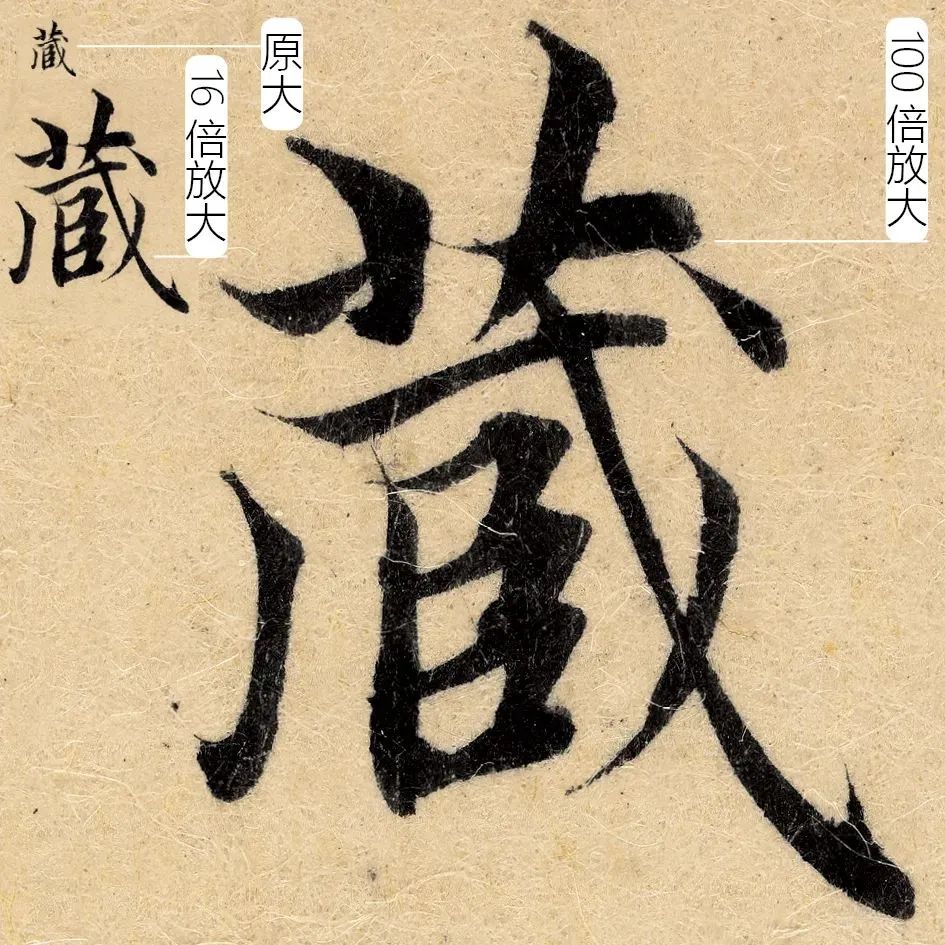 蔵
原大
蔵
16倍放大
蔵
100倍放大